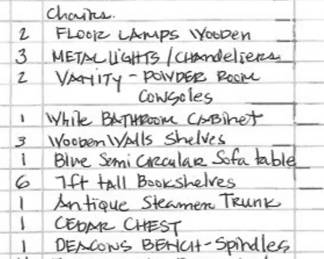 Chairs.
2 FLOOR LAMPS WOODEN
3 METAL LIGHTS/Chandeliers
2 VANITY - POWDER ROOM
CONSOLES
1 White BATHROOM CABINET
3 Wooden Walls Shelves
1 Blue Semi Circular Sofa table
6 7ft tall Bookshelves
1 Antique Steamer Trunk
1 CEDAR CHEST
1 DEACONS BENCH - Spindles